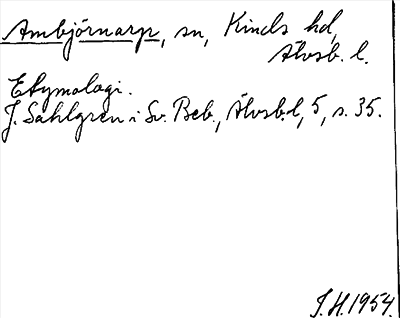 Ambjörnarp, sn, Kinds hd,
Älvsb. l.
Etymologi.
J. Sahlgren i Sv. Beb., Älvsb. l, 5, s. 35.
J.H. 1954.